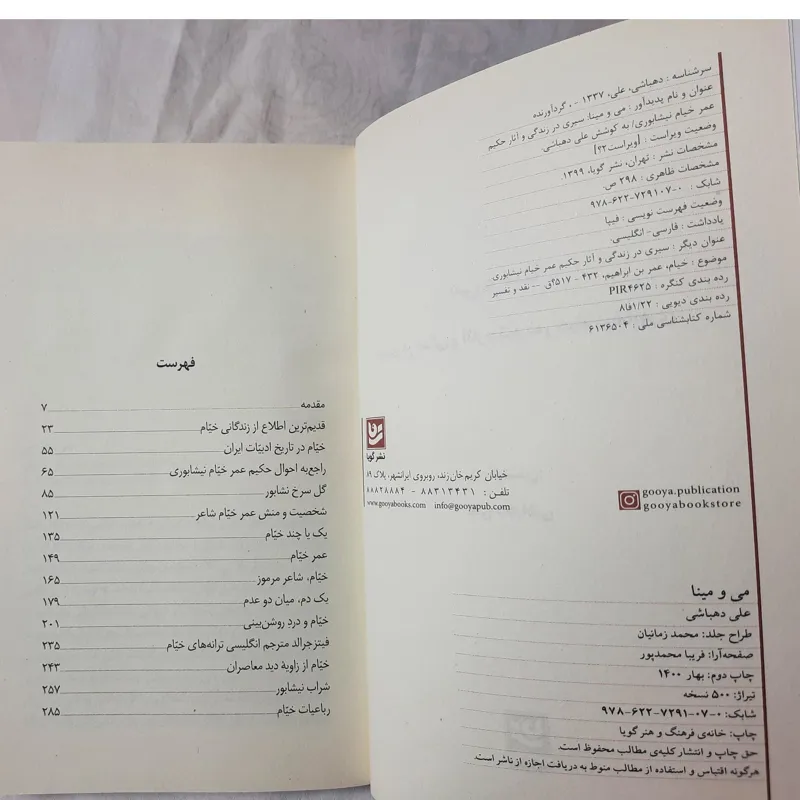 سرشناسه : دهباشی، علی، ۱۳۳۷ - ، گردآورنده
عنوان و نام پدیدآور : می و مینا: سیری در زندگی و آثار حکیم
عمر خیام نیشابوری/ به کوشش علی دهباشی.
وضعیت ویراست : [ویراست ۲؟]
مشخصات نشر : تهران، نشر گویا، ۱۳۹۹.
مشخصات ظاهری : ۲۹۸ ص.
شابک : ۹۷۸-۶۲۲-۷۲۹۱۰۷-۰
وضعیت فهرست نویسی : فیپا
یادداشت : فارسی- انگلیسی.
عنوان دیگر : سیری در زندگی و آثار حکیم عمر خیام نیشابوری
موضوع : خیام، عمر بن ابراهیم، ۴۳۲ - ۵۱۷؟ق -- نقد و تفسیر
رده بندی کنگره : PIR۴۶۲۵
رده بندی دیویی : ۱/۲۲فا۸
شماره کتابشناسی ملی : ۶۱۳۶۵۰۴
نشر گویا
خیابان کریم‌خان زند، روبروی ایرانشهر، پلاک ۸۹
تلفن : ۸۸۳۱۳۴۳۱ - ۸۸۸۲۸۸۸۴
www.gooyabooks.com info@gooyapub.com
gooya.publication
gooyabookstore
می و مینا
علی دهباشی
طراح جلد: محمد زمانیان
صفحه‌آرا: فریبا محمدپور
چاپ دوم: بهار ۱۴۰۰
تیراژ: ۵۰۰ نسخه
شابک: ۰-۰۷-۷۲۹۱-۶۲۲-۹۷۸
چاپ: خانه‌ی فرهنگ و هنر گویا
حق چاپ و انتشار کلیه‌ی مطالب محفوظ است.
هرگونه اقتباس و استفاده از مطالب منوط به دریافت اجازه از ناشر است.
فهرست
مقدمه ۷
قدیم‌ترین اطلاع از زندگانی خیّام ۲۳
خیّام در تاریخ ادبیّات ایران ۵۵
راجع‌به احوال حکیم عمر خیّام نیشابوری ۶۵
گل سرخ نشابور ۸۵
شخصیت و منش عمر خیّام شاعر ۱۲۱
یک یا چند خیّام ۱۳۵
عمر خیّام ۱۴۹
خیّام، شاعر مرموز ۱۶۵
یک دم، میان دو عدم ۱۷۹
خیّام و درد روشن‌بینی ۲۰۱
فیتزجرالد مترجم انگلیسی ترانه‌های خیّام ۲۳۵
خیّام از زاویهٔ دید معاصران ۲۴۳
شراب نیشابور ۲۵۷
رباعیات خیّام ۲۸۵